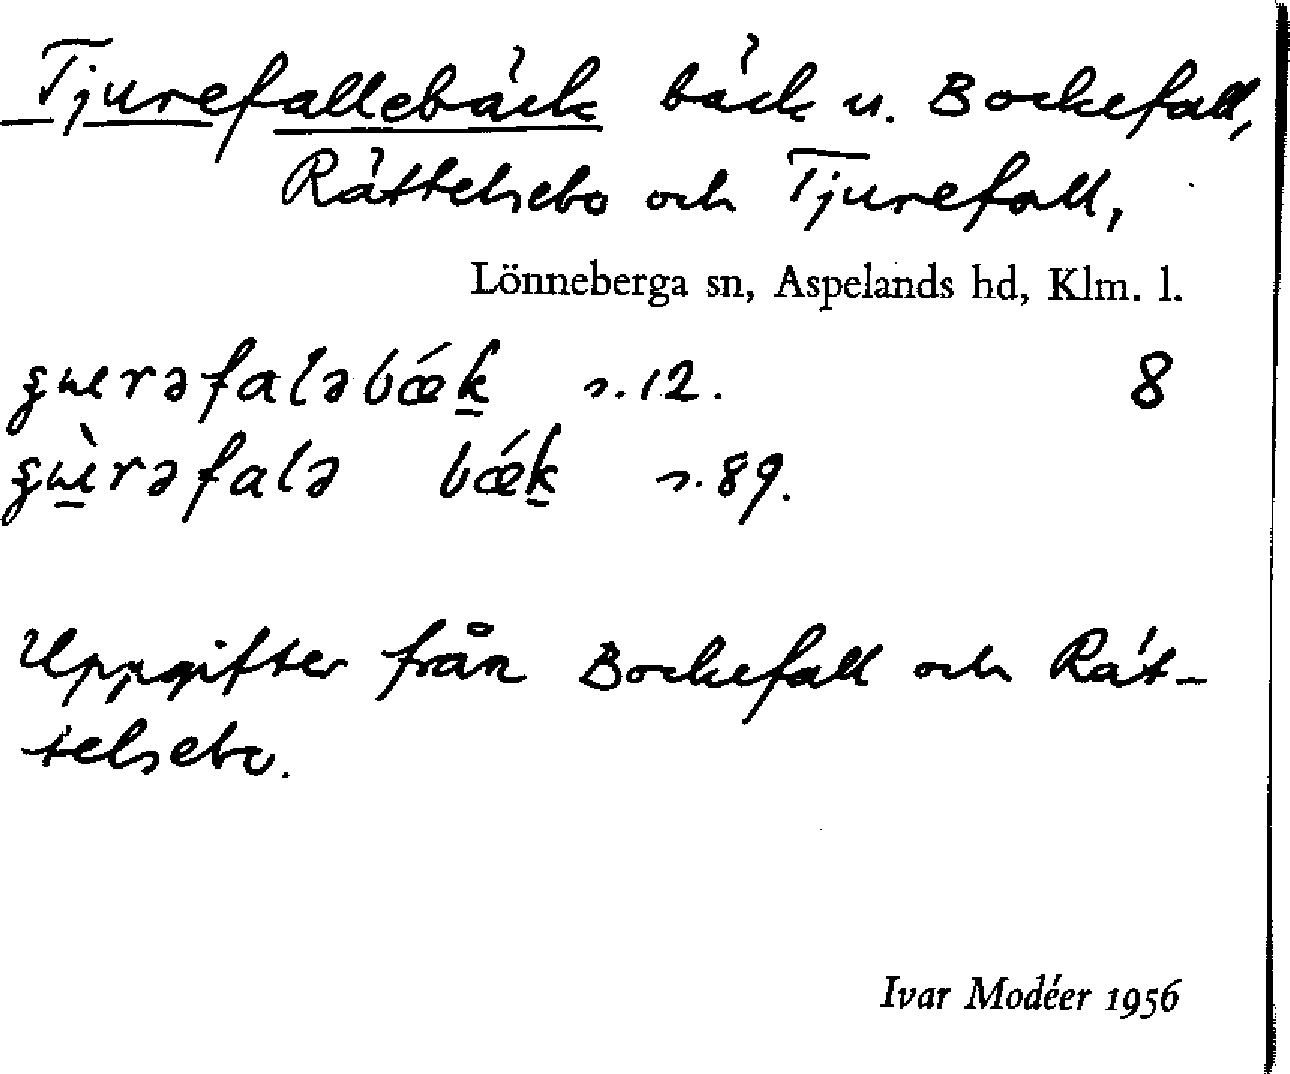 Tjurefallebäck bäck u. Bockefall,
Rättelsebo och Tjurefall,
Lönneberga sn, Aspelands hd, Klm. l.
ʒɯrəfaləbǽk s. 12. 8
ʒɯ̀rəfalə bǽk s. 89.
Uppgifter från Bockefall och Rät-
telsebo.
Ivar Modéer 1956